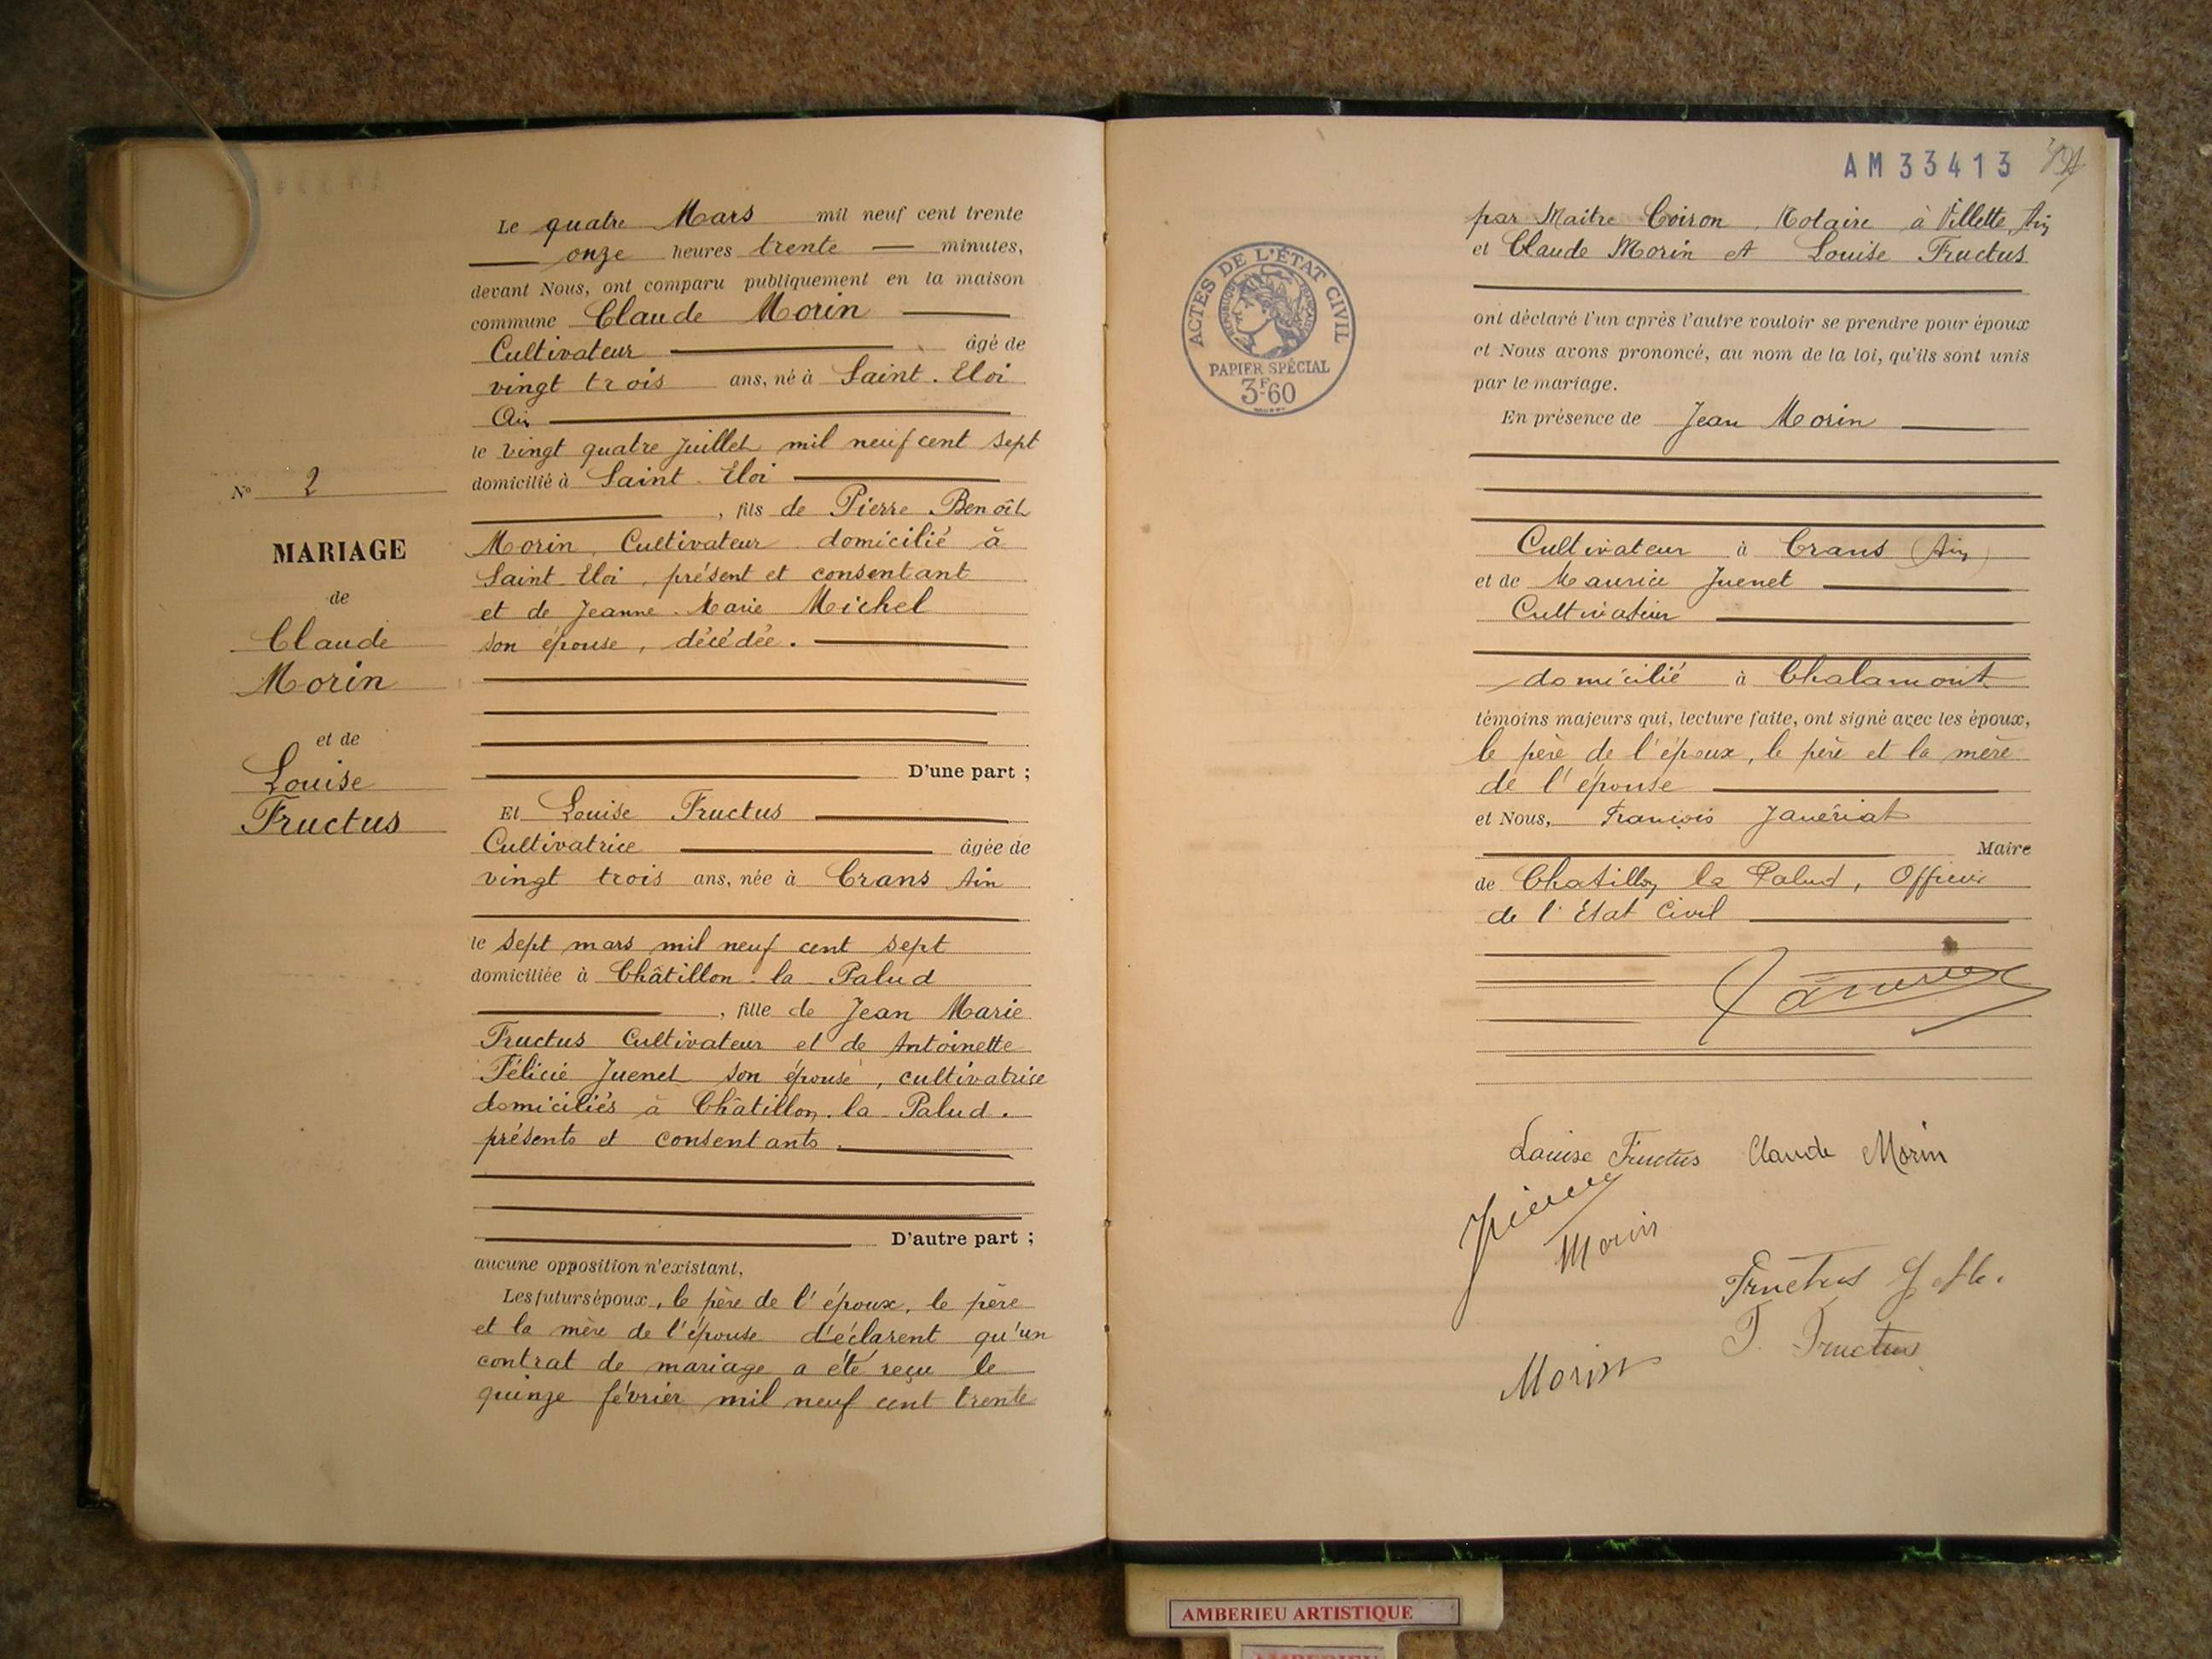 Le quatre Mars mil neuf cent trente
onze heures trente minutes,
devant Nous, ont comparu publiquement en la maison
commune Claude Morin
Cultivateur âgé de
vingt trois ans, né à Saint. Eloi
Ain
le vingt quatre Juillet mil neuf cent sept
domicilié à Saint-Eloi
, fils de Pierre Benoît
Morin, Cultivateur domicilié à
Saint Eloi, présent et consentant
et de Jeanne-Marie Michel
son épouse, décédée.
D'une part ;
N° 2
MARIAGE
de
Claude
Morin
et de
Louise
Fructus
Et Louise Fructus
Cultivatrice âgée de
vingt trois ans, née à Crans Ain
le sept mars mil neuf cent sept
domiciliée à Châtillon-la-Palud
, fille de Jean Marie
Fructus Cultivateur et de Antoinette
Félicie Juenet son épouse, cultivatrice
domiciliés à Châtillon-la-Palud.
présents et consentants.
D'autre part ;
aucune opposition n'existant,
Les futurs époux, le père de l'époux, le père
et la mère de l'épouse déclarent qu'un
contrat de mariage a été reçu le
quinze février mil neuf cent trente
AM33413
par Maitre Coiron, Notaire à Villette, Ain
et Claude Morin et Louise Fructus
ont déclaré l'un après l'autre vouloir se prendre pour époux
et Nous avons prononcé, au nom de la loi, qu'ils sont unis
par le mariage.
En présence de Jean Morin
Cultivateur à Crans (Ain)
et de Maurice Juenet
Cultivateur
domicilié à Chalamont
témoins majeurs qui, lecture faite, ont signé avec les époux,
le père de l'époux, le père et la mère
de l'épouse
et Nous, François Janériat
Maire
de Chatillon la Palud, Officier
de l'Etat Civil
ACTES DE L'ÉTAT CIVIL
RÉPUBLIQUE FRANÇAISE
PAPIER SPÉCIAL
3F60
Louise Fructus Claude Morin
Morin
Fructus J. M.
Fructus
Morin
AMBERIEU ARTISTIQUE
AMBERIEU